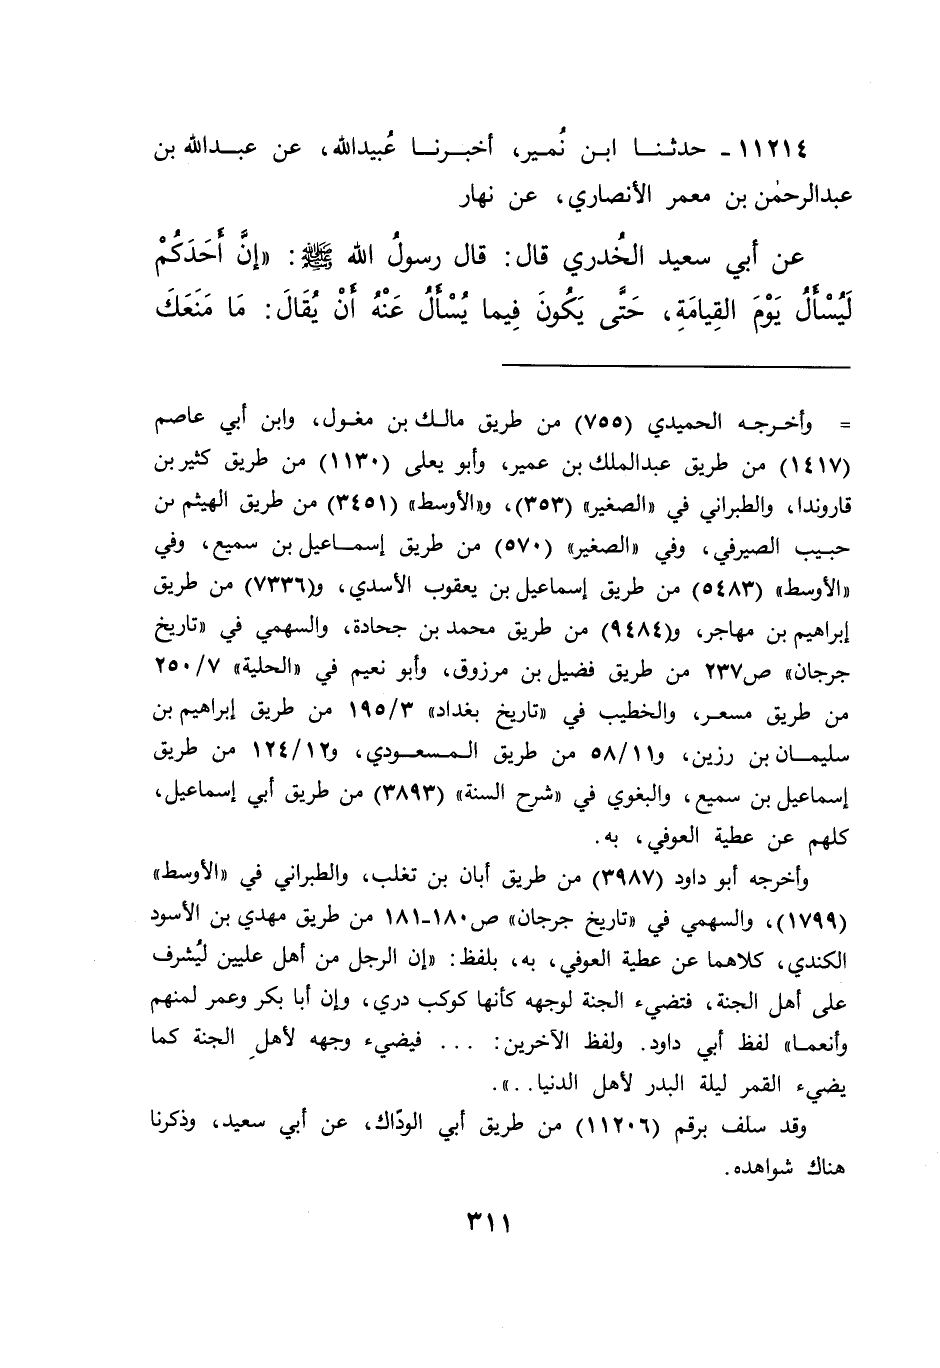 ١١٢١٤ - حدثنا ابن نُمير، أخبرنا عُبيدالله، عن عبدالله بن
عبدالرحمٰن بن معمر الأنصاري، عن نهار
عن أبي سعيد الخُدري قال: قال رسولُ الله ﷺ: «إنَّ أَحَدَكُمْ
لَيُسْأَلُ يَوْمَ القِيامَةِ، حَتَّى يَكُونَ فِيما يُسْأَلُ عَنْهُ أَنْ يُقَالَ: مَا مَنَعَكَ
= وأخرجه الحميدي (٧٥٥) من طريق مالك بن مغول، وابن أبي عاصم
(١٤١٧) من طريق عبدالملك بن عمير، وأبو يعلى (١١٣٠) من طريق كثير بن
قاروندا، والطبراني في «الصغير» (٣٥٣)، و«الأوسط» (٣٤٥١) من طريق الهيثم بن
حبيب الصيرفي، وفي «الصغير» (٥٧٠) من طريق إسماعيل بن سميع، وفي
«الأوسط» (٥٤٨٣) من طريق إسماعيل بن يعقوب الأسدي، و(٧٣٣٦) من طريق
إبراهيم بن مهاجر، و(٩٤٨٤) من طريق محمد بن جحادة، والسهمي في «تاريخ
جرجان» ص٢٣٧ من طريق فضيل بن مرزوق، وأبو نعيم في «الحلية» ٢٥٠/٧
من طريق مسعر، والخطيب في «تاريخ بغداد» ١٩٥/٣ من طريق إبراهيم بن
سليمان بن رزين، و٥٨/١١ من طريق المسعودي، و١٢٤/١٢ من طريق
إسماعيل بن سميع، والبغوي في «شرح السنة» (٣٨٩٣) من طريق أبي إسماعيل،
كلهم عن عطية العوفي، به.
وأخرجه أبو داود (٣٩٨٧) من طريق أبان بن تغلب، والطبراني في «الأوسط»
(١٧٩٩)، والسهمي في «تاريخ جرجان» ص١٨٠-١٨١ من طريق مهدي بن الأسود
الكندي، كلاهما عن عطية العوفي، به، بلفظ: «إن الرجل من أهل عليين ليُشرف
على أهل الجنة، فتضيء الجنة لوجهه كأنها كوكب دري، وإن أبا بكر وعمر لمنهم
وأنعما» لفظ أبي داود. ولفظ الآخرين: ... فيضيء وجهه لأهل الجنة كما
يضيء القمر ليلة البدر لأهل الدنيا..».
وقد سلف برقم (١١٢٠٦) من طريق أبي الودّاك، عن أبي سعيد، وذكرنا
هناك شواهده.
٣١١